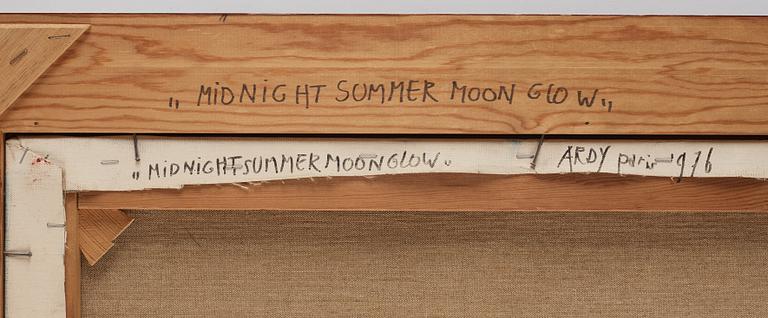 „ MiDNiGHT SUMMER MOON GLOW„
„MiDNiGHTSUMMERMOONGLOW„ ARDY paris 976